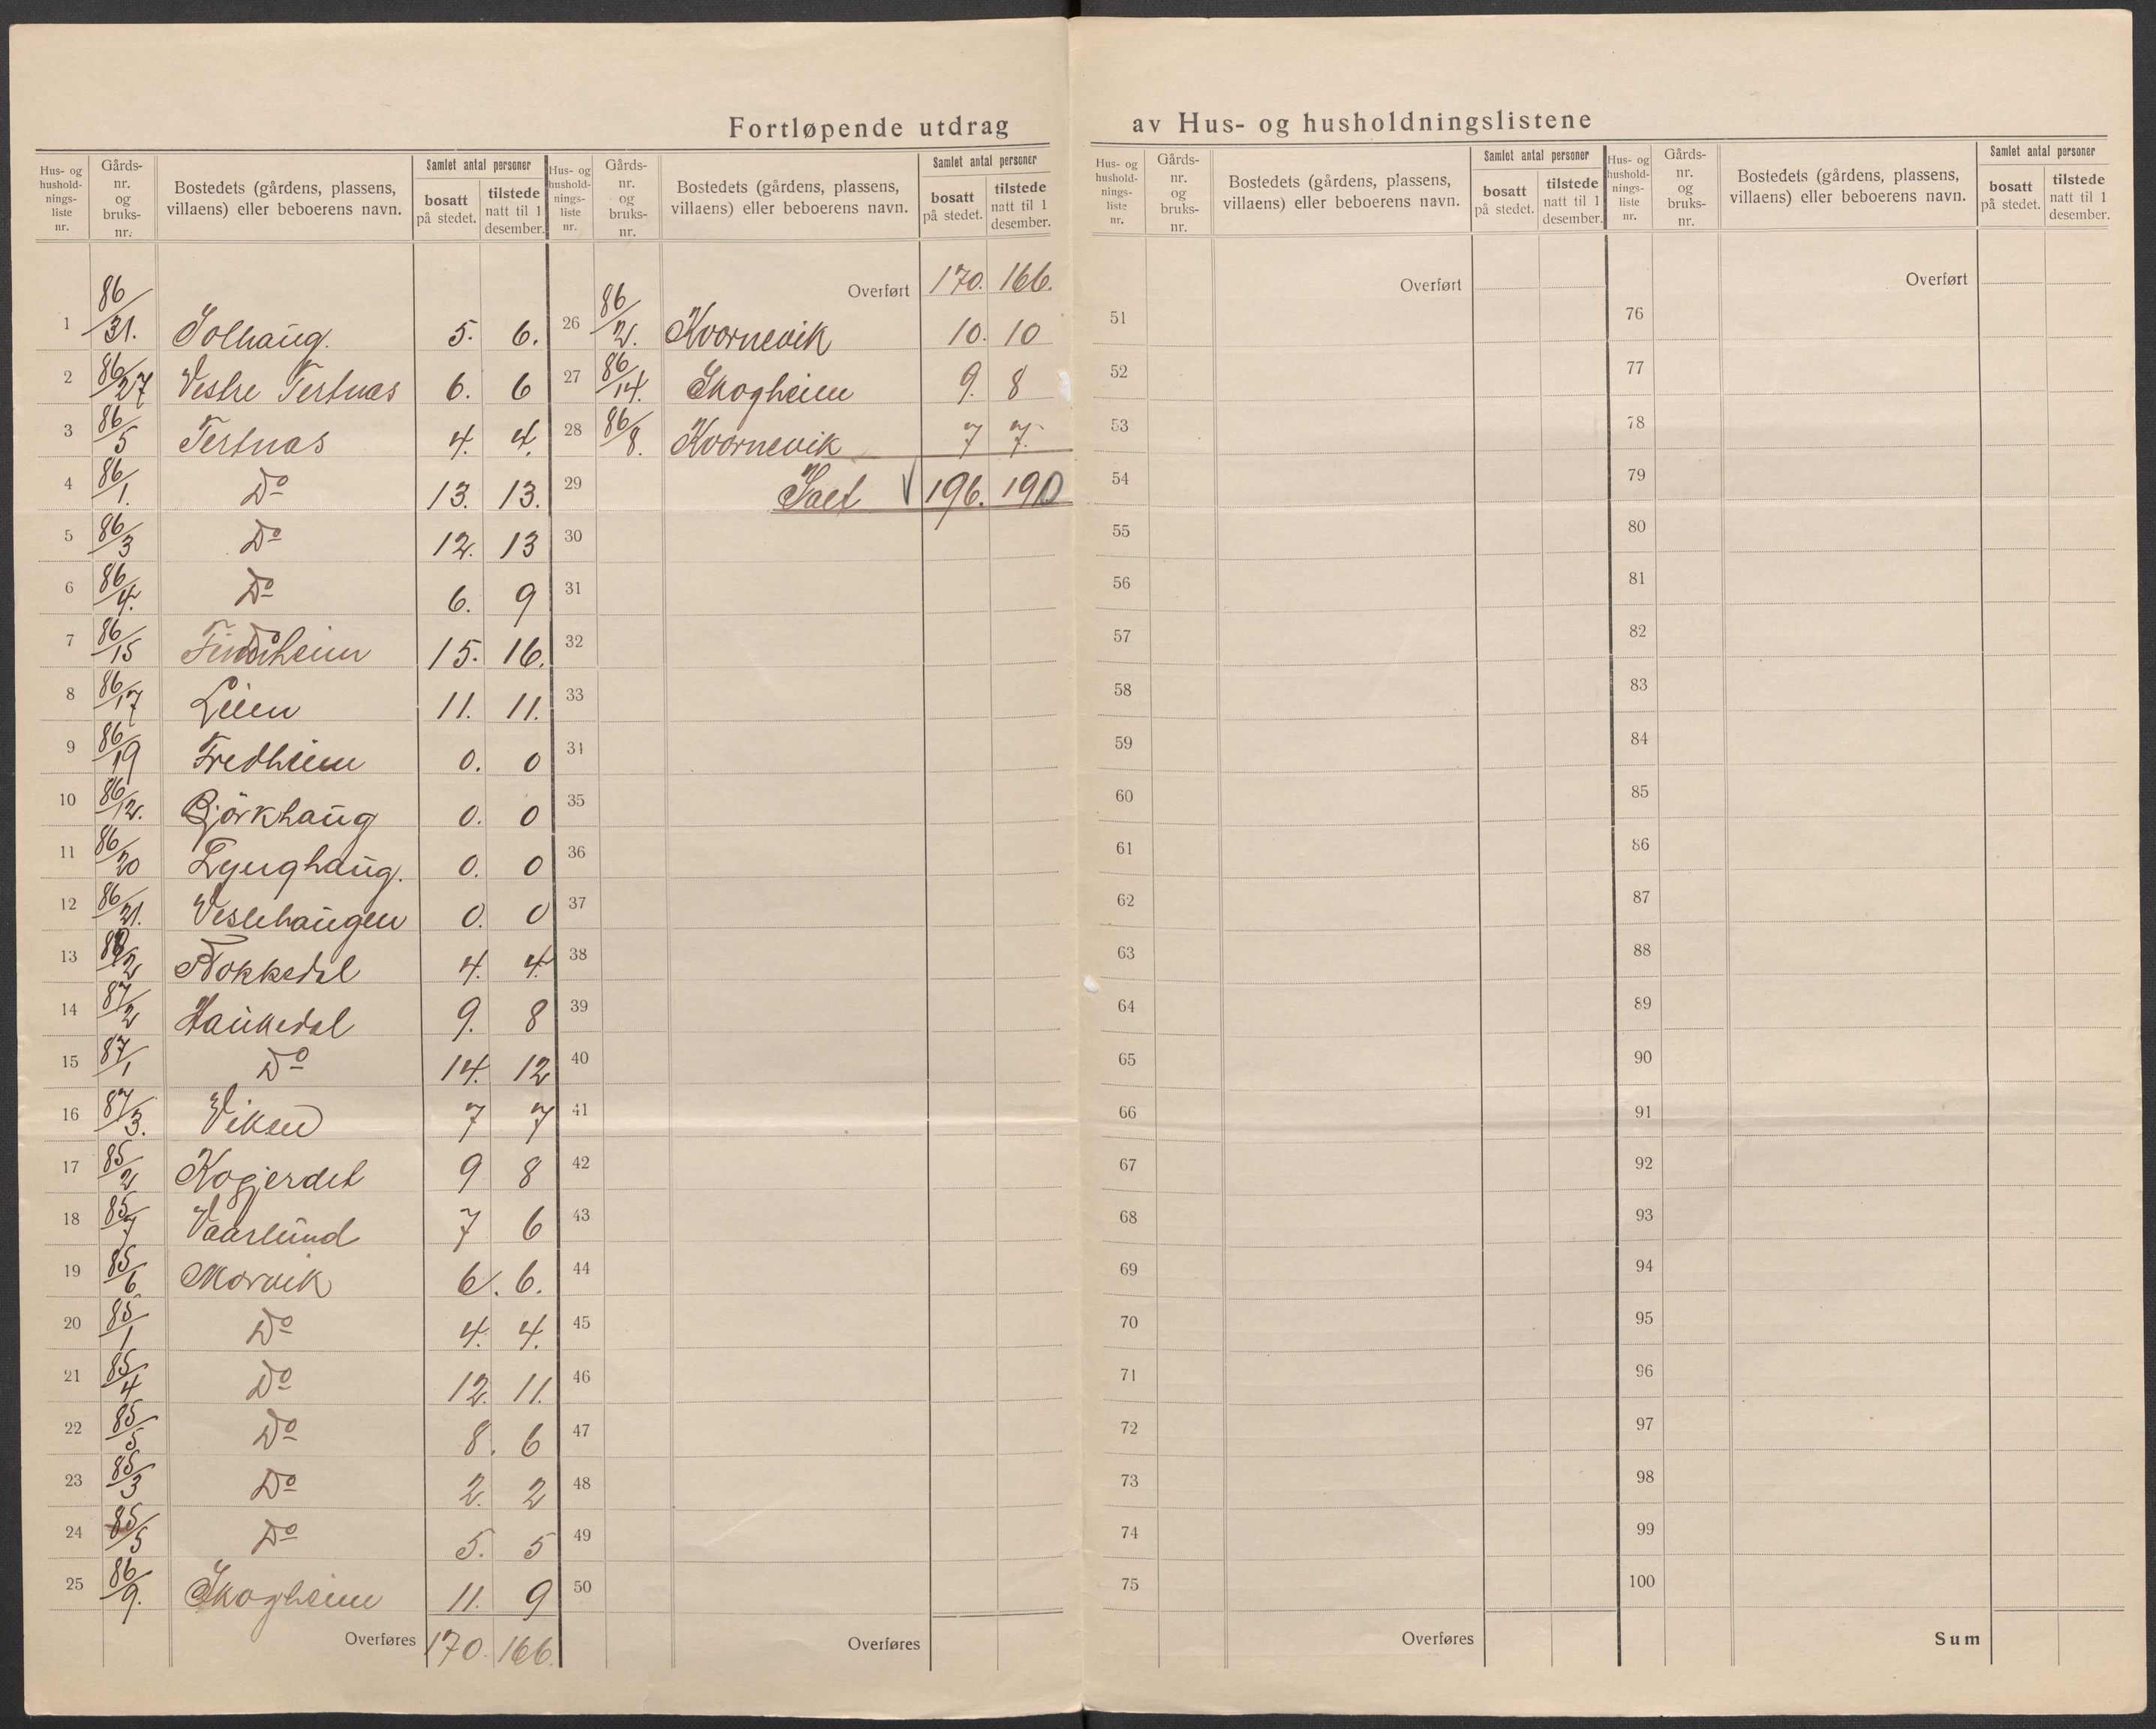 Fortløpende utdrag av Hus- og husholdningslistene
Hus- og hushold-nings-liste nr. | Gårds-nr. og bruks-nr. | Bostedets (gårdens, plassens, villaens) eller beboerens navn. | Samlet antal personer | bosatt på stedet. | tilstede natt til 1 desember.
1 86/31. Solhaug. 5. 6.
2 86/27 Vestre Tertnæs 6. 6
3 86/5 Tertnas 4. 4.
4 86/1. Do 13. 13.
5 86/3 Do 12. 13
6 86/4. Do 6. 9
7 86/15 15. 16.
8 86/17 Leien 11. 11.
9 86/19 Fredheim 0. 0
10 86/12. Björkhaug 0. 0
11 86/20 Lynghaug. 0. 0
12 86/21. Veslehaugen 0. 0
13 4. 4.
14 87/2 Haukedal 9. 8
15 87/1 Do 14. 12
16 87/3. Viken 7 7
17 85/2 Kogjerdet 9 8
18 85/7 Vaarlund 7 6
19 85/6 Morvik 6. 6.
20 85/1 Do 4. 4.
21 85/4 Do 12. 11.
22 85/5 Do 8. 6
23 85/3 Do 2. 2
24 85/5 Do 5. 5
25 86/9. Skogheim 11. 9
Overføres 170. 166.
Hus- og hushold-nings-liste nr. | Gårds-nr. og bruks-nr. | Bostedets (gårdens, plassens, villaens) eller beboerens navn. | Samlet antal personer | bosatt på stedet. | tilstede natt til 1 desember.
Overført 170. 166.
26 86/2. Kvornevik 10. 10
27 86/14. Skogheim 9. 8
28 86/8. Kvornevik 7 7.
29 196. 190
30
31
32
33
34
35
36
37
38
39
40
41
42
43
44
45
46
47
48
49
50
Overføres
Hus- og hushold-nings-liste nr. | Gårds-nr. og bruks-nr. | Bostedets (gårdens, plassens, villaens) eller beboerens navn. | Samlet antal personer | bosatt på stedet. | tilstede natt til 1 desember.
Overført
51
52
53
54
55
56
57
58
59
60
61
62
63
64
65
66
67
68
69
70
71
72
73
74
75
Overføres
Hus- og hushold-nings-liste nr. | Gårds-nr. og bruks-nr. | Bostedets (gårdens, plassens, villaens) eller beboerens navn. | Samlet antal personer | bosatt på stedet. | tilstede natt til 1 desember.
Overført
76
77
78
79
80
81
82
83
84
85
86
87
88
89
90
91
92
93
94
95
96
97
98
99
100
Sum